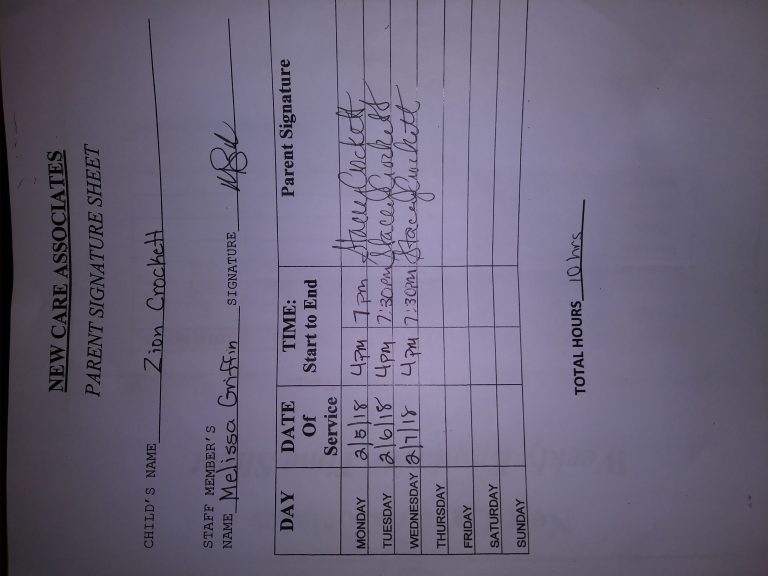 NEW CARE ASSOCIATES
PARENT SIGNATURE SHEET
CHILD'S NAME Zion Crockett
STAFF MEMBER'S
NAME Melissa Griffin SIGNATURE
DAY DATE Of Service TIME: Start to End Parent Signature
MONDAY 2/5/18 4pm 7pm Stacey Crockett
TUESDAY 2/6/18 4pm 7:30pm Stacey Crockett
WEDNESDAY 2/7/18 4pm 7:30pm Stacey Crockett
THURSDAY
FRIDAY
SATURDAY
SUNDAY
TOTAL HOURS 10 hrs